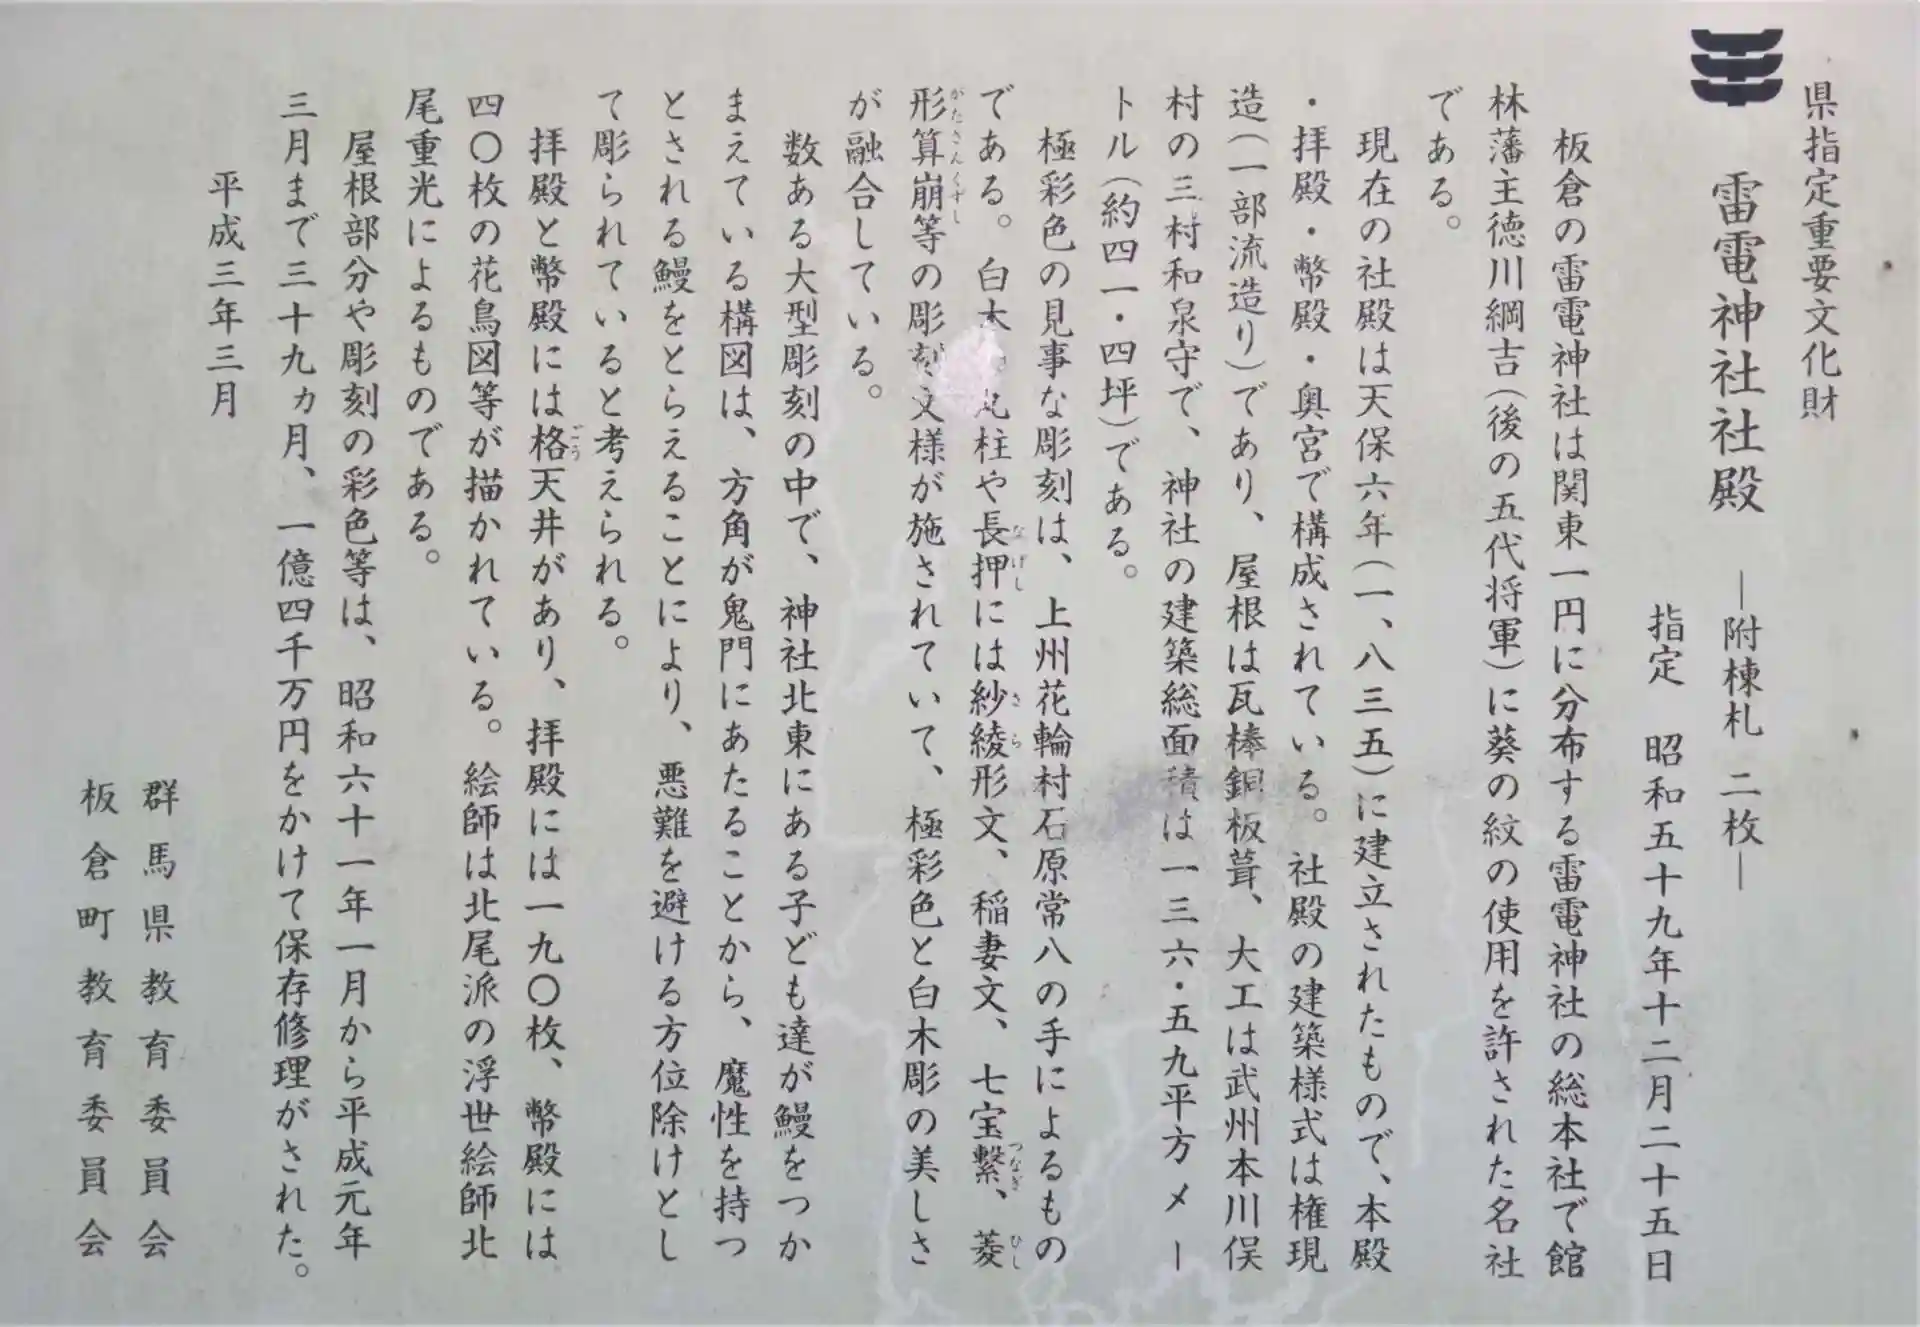 県指定重要文化財
雷電神社社殿 ―附棟札 二枚―
指定 昭和五十九年十二月二十五日
板倉の雷電神社は関東一円に分布する雷電神社の総本社で館
林藩主徳川綱吉(後の五代将軍)に葵の紋の使用を許された名社
である。
現在の社殿は天保六年(一、八三五)に建立されたもので、本殿
・拝殿・幣殿・奥宮で構成されている。社殿の建築様式は権現
造(一部流造り)であり、屋根は瓦棒銅板葺、大工は武州本川俣
村の三村和泉守で、神社の建築総面積は一三六・五九平方メー
トル(約四一・四坪)である。
極彩色の見事な彫刻は、上州花輪村石原常八の手によるもの
である。白木 丸柱や長押には紗綾形文、稲妻文、七宝繋、菱
形算崩等の彫刻文様が施されていて、極彩色と白木彫の美しさ
が融合している。
数ある大型彫刻の中で、神社北東にある子ども達が鰻をつか
まえている構図は、方角が鬼門にあたることから、魔性を持つ
とされる鰻をとらえることにより、悪難を避ける方位除けとし
て彫られていると考えられる。
拝殿と幣殿には格天井があり、拝殿には一九〇枚、幣殿には
四〇枚の花鳥図等が描かれている。絵師は北尾派の浮世絵師北
尾重光によるものである。
屋根部分や彫刻の彩色等は、昭和六十一年一月から平成元年
三月まで三十九ヵ月、一億四千万円をかけて保存修理がされた。
平成三年三月
群馬県教育委員会
板倉町教育委員会